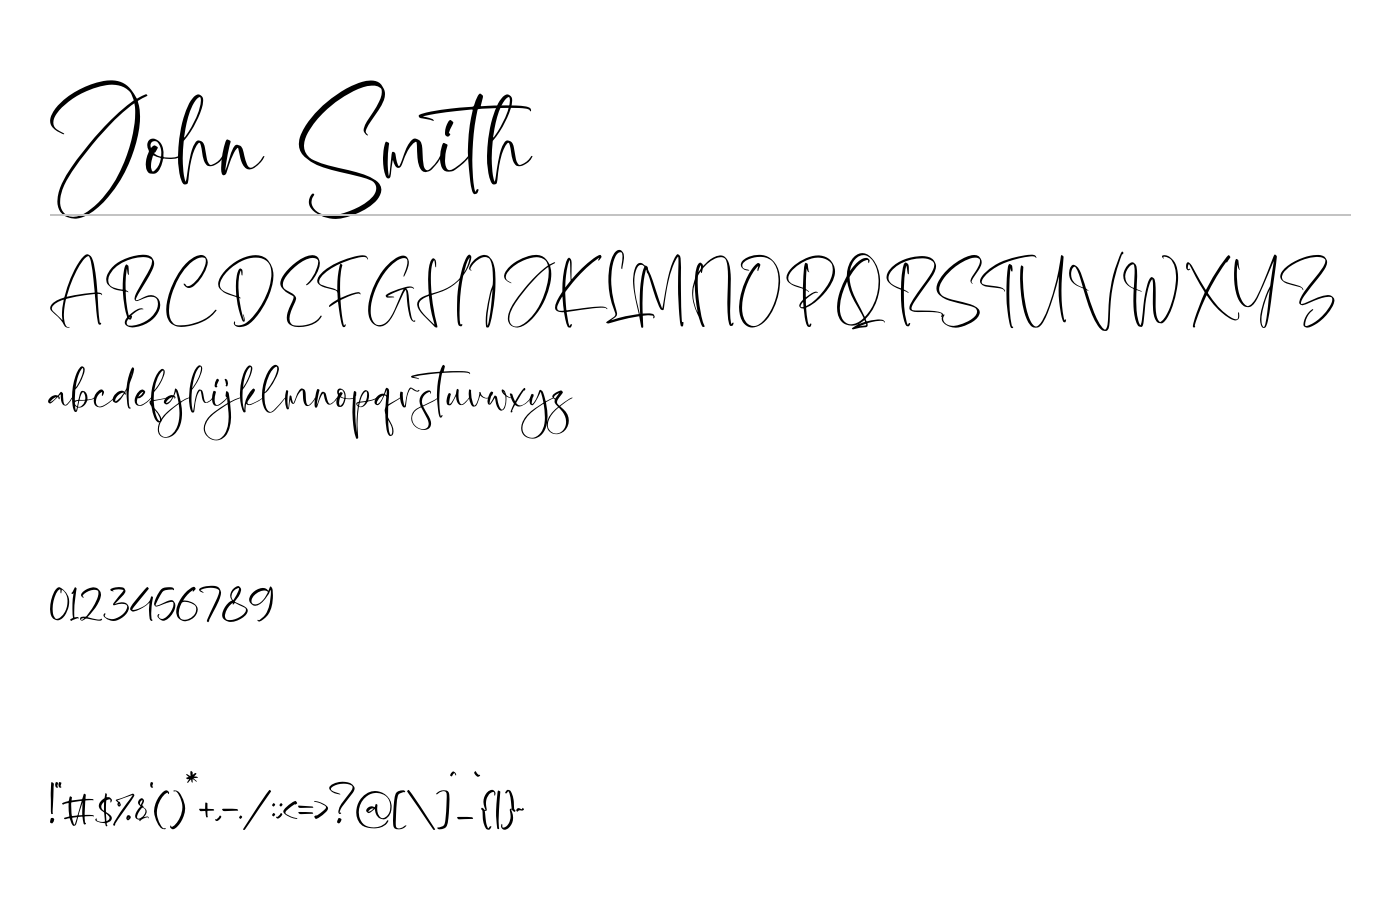 John Smith
ABCDEFGHIJKLMNOPQRSTUVWXYZ
abcdefghijklmnopqrstuvwxyz
0123456789
!"#$%&'()*+,-./:;<=>?@[\]^_`{|}~